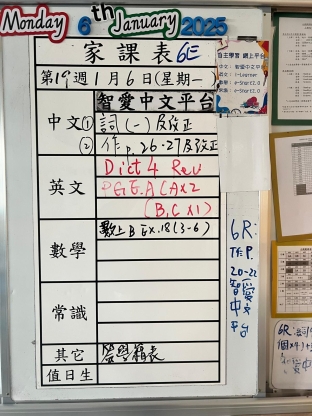 Monday 6th January 2025
家課表 6E
第19週1月6日(星期一)
智愛中文平台
中文 ① 詞(一)及改正
② 作p.26-27及改正
英文
Dict 4 Rev
P.G.E.A (A×2
(B,C ×1)
數學
數上B Ex.18(3-6)
常識
其它
值日生
自主學習 網上平台
中文: 智愛中文平台
6R:
作P.
20-22
智愛
中文
平台
6R: